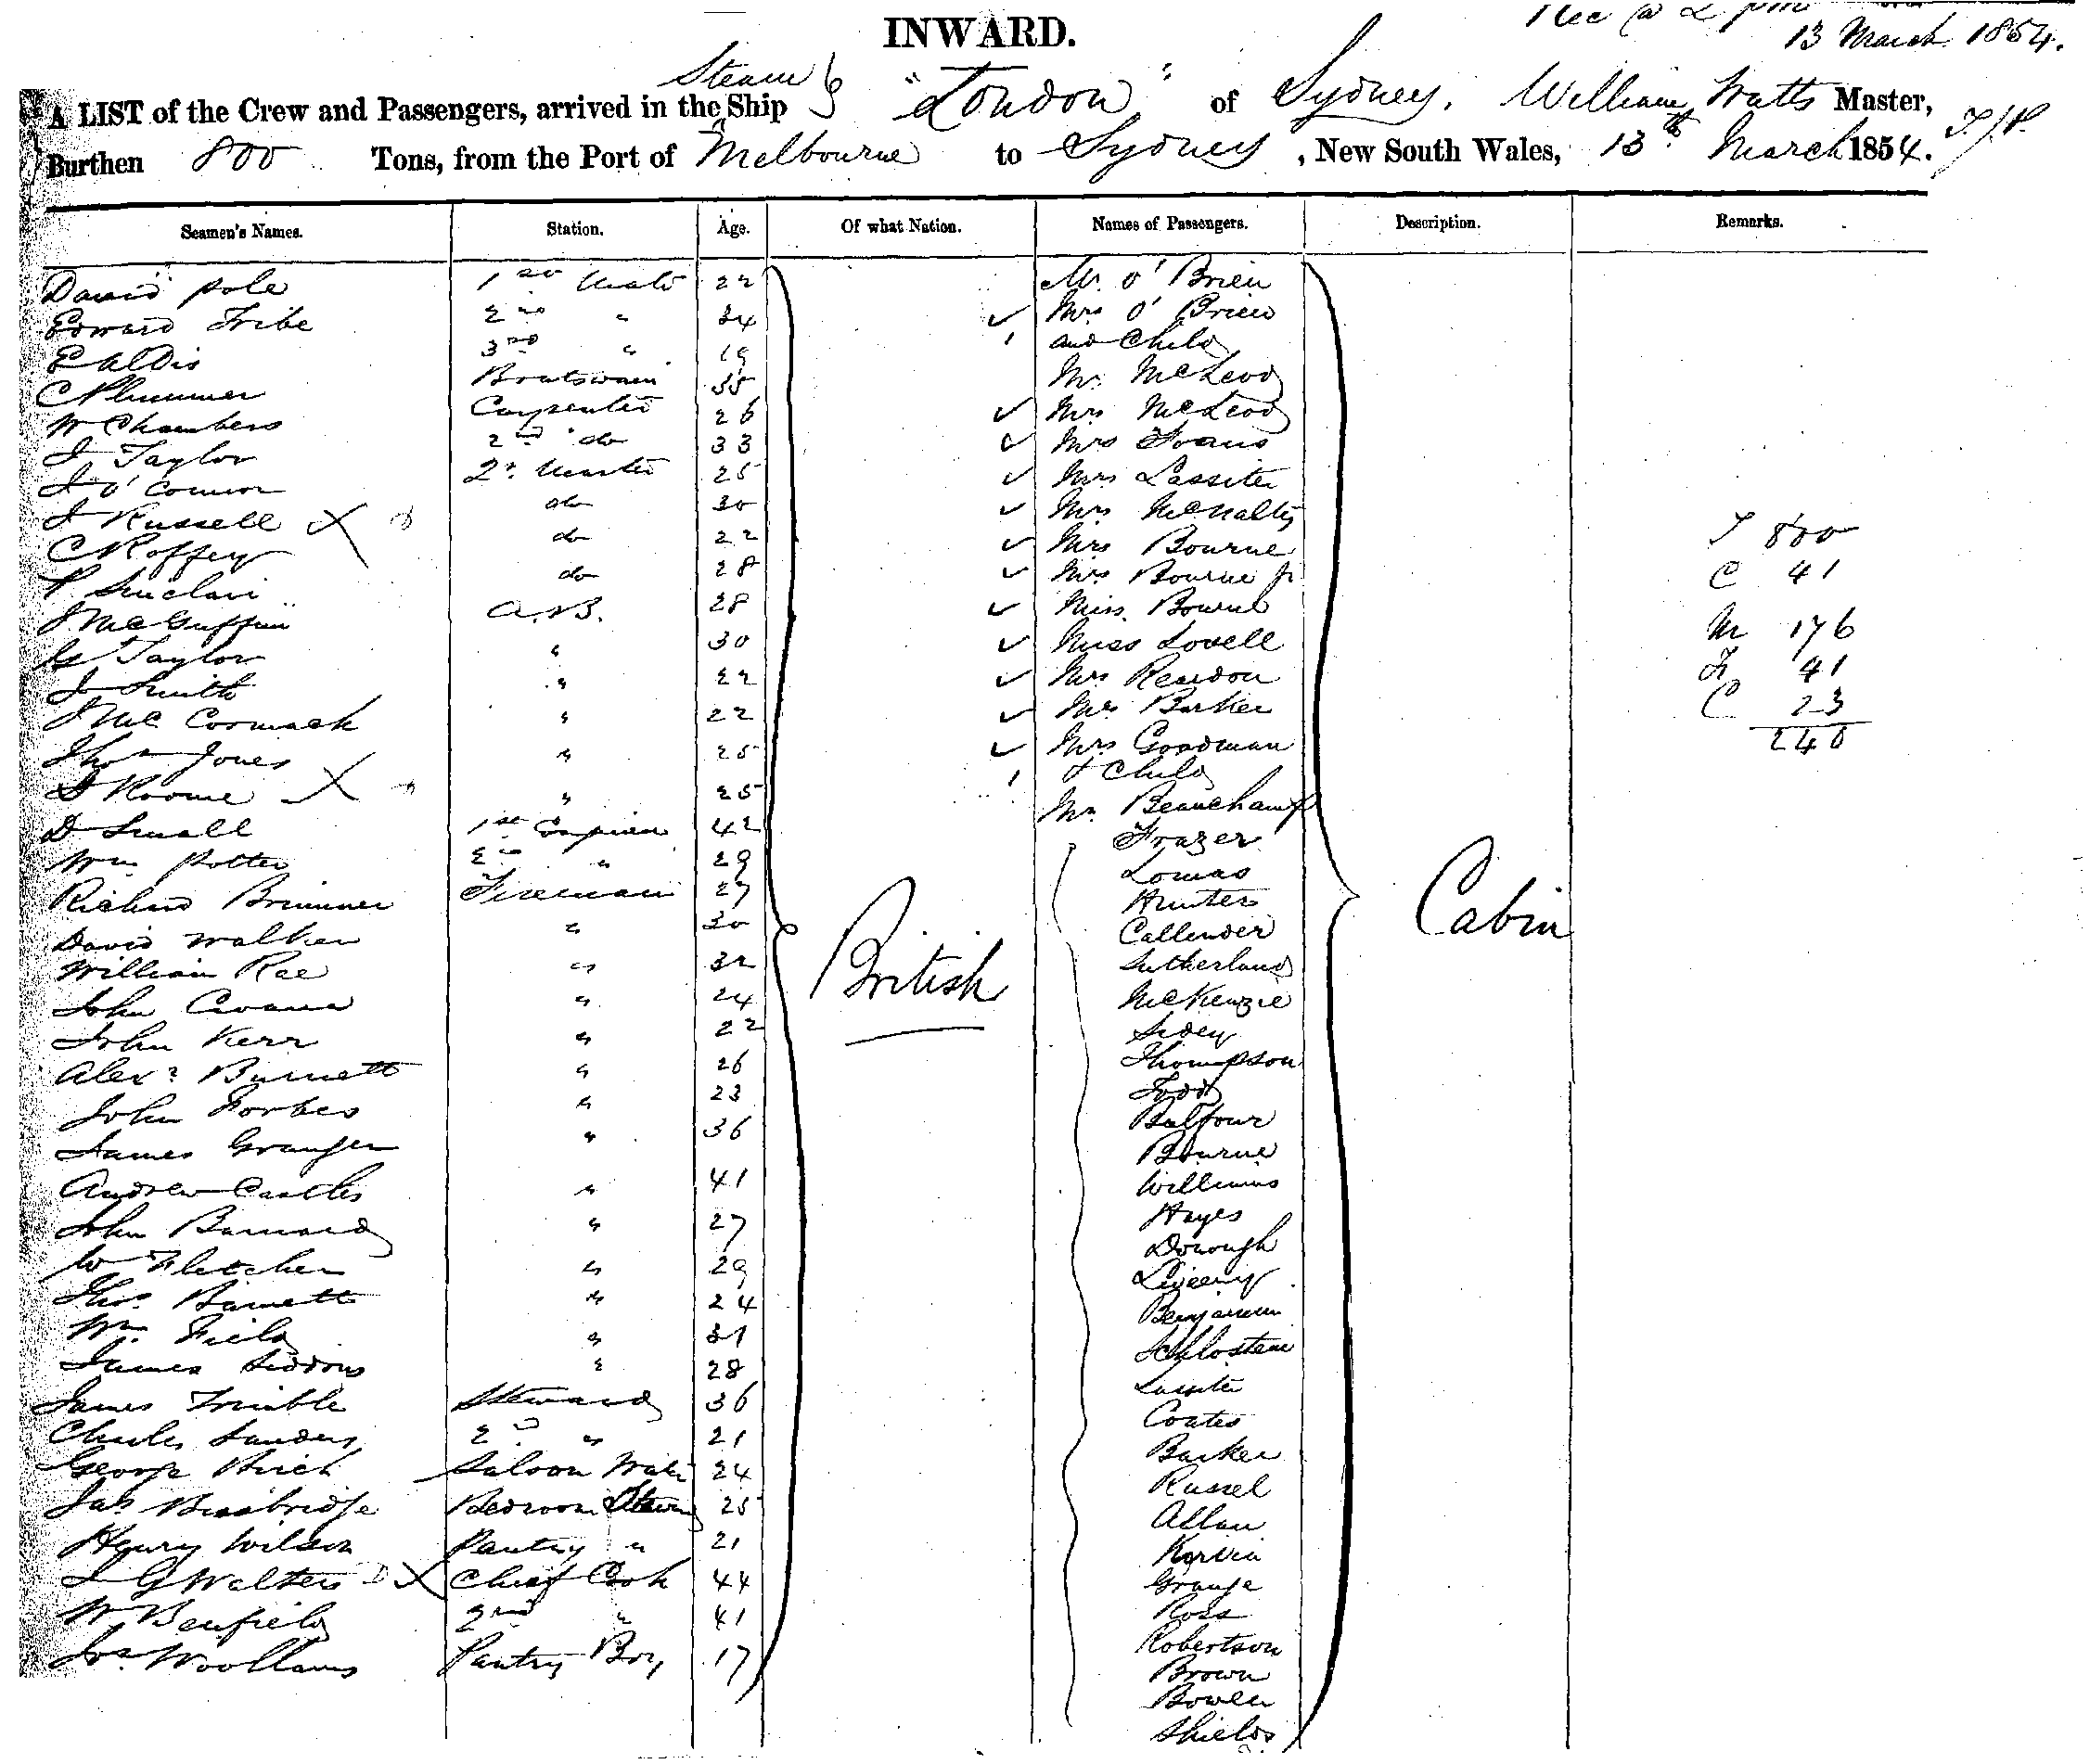 Rec @ 2 pm
13 March 1854.
INWARD.
A LIST of the Crew and Passengers, arrived in the Steam Ship "London" of Sydney, William Watts Master,
Burthen 800 Tons, from the Port of Melbourne to Sydney, New South Wales, 13th March 1854.
Seamen's Names. Station. Age. Of what Nation. Names of Passengers. Description. Remarks.
David Pole 1st Mate 22 Mr. O'Brien
Edward Tribe 2nd " 24 Mrs O'Brien
E Aldis 3rd " 19 and Child
C Plummer Boatswain 35 Mr. McLeod
W Chambers Carpenter 26 Mrs McLeod
J Taylor 2nd do 33 Mrs Evans
J O'Connor Qr. Master 25 Mrs Lassiter
J Russell X do 30 Mrs McNalty
C Roffey do 22 Mrs Bourne
P Sinclair do 28 Mrs Bourne Jr
J McGuffin A.B. 28 Miss Bourne
G Taylor " 30 Miss Lovell
J Smith " 22 Mrs Reardon
J McCormack " 22 Mrs Barker
Thos Jones " 25 Mrs Goodman
J Roome X " 25 & Child
D Small 1st 42 Mr. Beauchamp
Wm Potter 2nd " 29 Frazer
Richard Brimmer Fireman 27 Lomas
David Walker " 30 Hunter
William Rae " 32 Callender
John Evans " 24 Sutherland
John Kerr " 22 McKenzie
Alexr Burnett " 26 Sidey
John Forbes " 23 Thompson
James Granger " 36 Todd
Andrew Castles " 41 Balfour
John Barnard " 27 Bourne
W Fletcher " 29 Williams
Thos. Barnett " 24 Hayes
Wm. Field " 31 Donough
James Siddons " 28
James Trimble Steward 36 Benjamin
Charles Sanders 2nd " 21
George Birch Saloon Waiter 24 Lassiter
Jas Busbridge Bedroom Steward 25 Coates
Henry Wilson Pantry " 21 Barker
J G Walters X Chief Cook 44 Russel
W Benfield 2nd " 41 Allan
Jos. Woollams Pantry Boy 17
Grange
Ross
Robertson
Brown
Bowen
Shields
British
Cabin
T 800
C 41
M 176
F 41
C 23
240